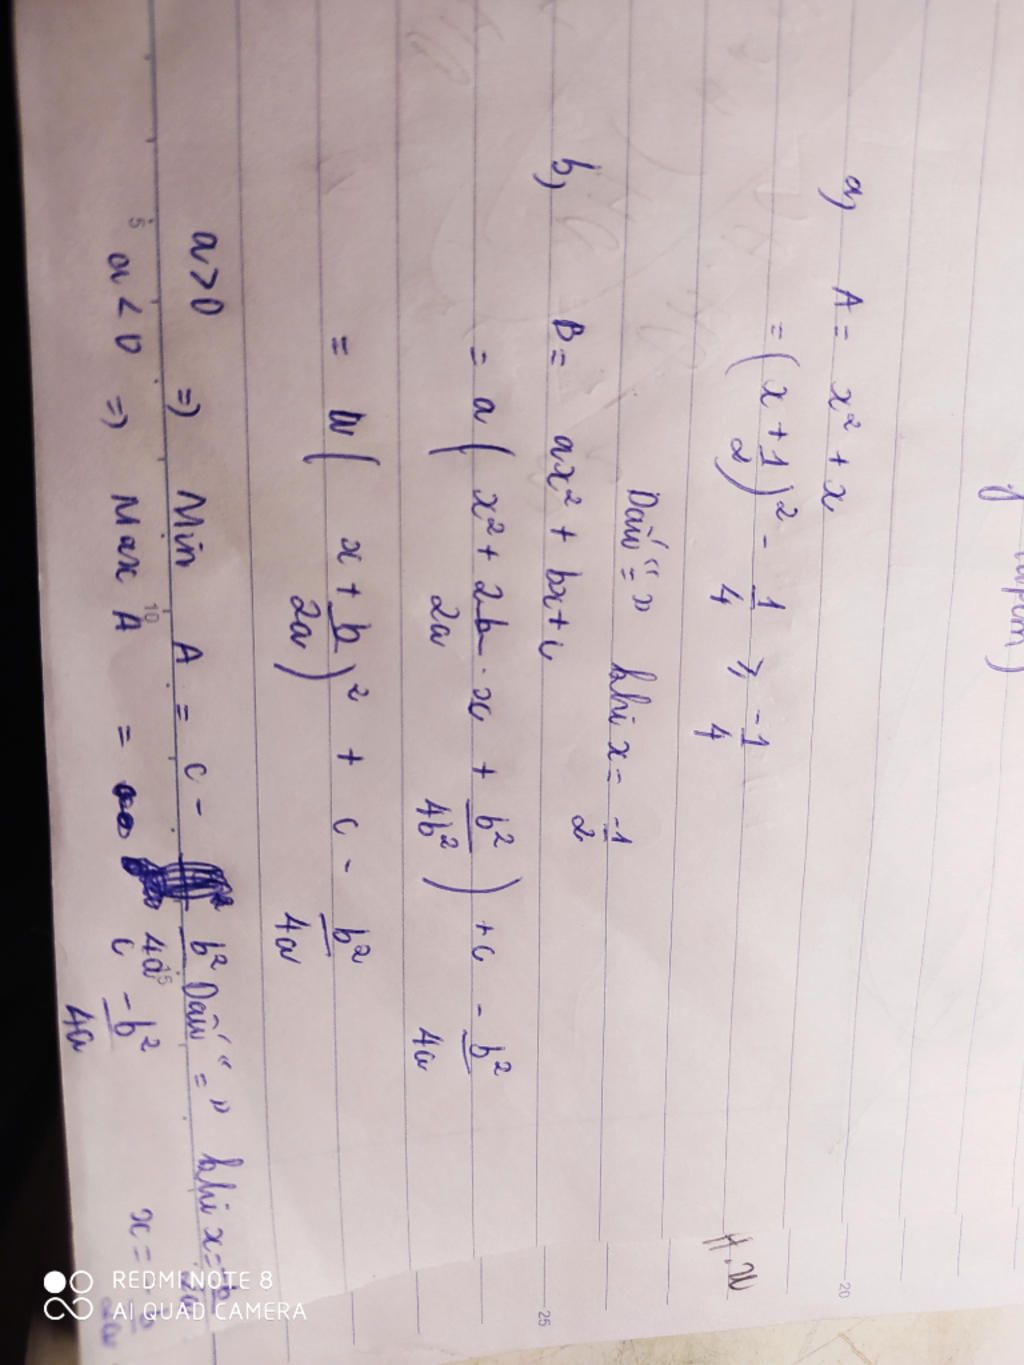 a, A = x² + x
= (x + 1/2)² - 1/4 ≥ -1/4
Dấu "=" khi x = -1/2
b, B = ax² + bx + c
= a ( x² + 2b/2a . x + b²/4b² ) + c - b²/4a
= a ( x + b/2a )² + c - b²/4a
a > 0 => Min A = c - b²/4a Dấu "=" khi x =
a < 0 => Max A = c - b²/4a x =
H.W
5
10
15
20
25
REDMI NOTE 8
AI QUAD CAMERA